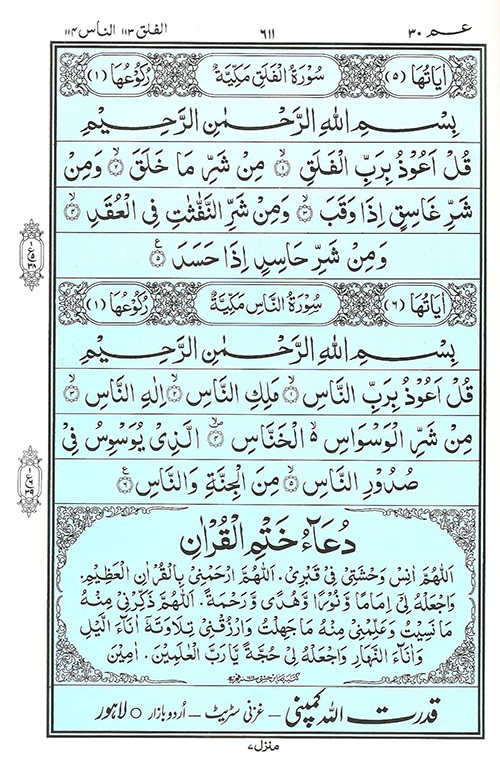 عـم ٣٠
٦١١
الفلق ١١٣ الناس ١١٤
اٰيَاتُهَا (٥) سُوْرَةُ الْفَلَقِ مَكِّيَّةٌ رُكُوْعُهَا (١)
بِسْمِ اللّٰهِ الرَّحْمٰنِ الرَّحِيْمِ
قُلْ اَعُوْذُ بِرَبِّ الْفَلَقِ ۙ‏﴿۱﴾ مِنْ شَرِّ مَا خَلَقَ ۙ‏﴿۲﴾ وَمِنْ
شَرِّ غَاسِقٍ اِذَا وَقَبَ ۙ‏﴿۳﴾ وَمِنْ شَرِّ النَّفّٰثٰتِ فِى الْعُقَدِ ۙ‏﴿۴﴾
وَمِنْ شَرِّ حَاسِدٍ اِذَا حَسَدَ ﴿۵﴾ ع
ع ١ ٥ ٣٨
اٰيَاتُهَا (٦) سُوْرَةُ النَّاسِ مَكِّيَّةٌ رُكُوْعُهَا (١)
بِسْمِ اللّٰهِ الرَّحْمٰنِ الرَّحِيْمِ
قُلْ اَعُوْذُ بِرَبِّ النَّاسِ ۙ‏﴿۱﴾ مَلِكِ النَّاسِ ۙ‏﴿۲﴾ اِلٰهِ النَّاسِ ۙ‏﴿۳﴾
مِنْ شَرِّ الْوَسْوَاسِ ۙ الْخَنَّاسِ ﴿۴﴾ الَّذِىْ يُوَسْوِسُ فِىْ
صُدُوْرِ النَّاسِ ۙ‏﴿۵﴾ مِنَ الْجِنَّةِ وَالنَّاسِ ﴿۶﴾ ع
ع ١ ٦ ٣٩
دُعَآءُ خَتْمِ الْقُرْاٰنِ
اَللّٰهُمَّ اٰنِسْ وَحْشَتِىْ فِىْ قَبْرِىْ. اَللّٰهُمَّ ارْحَمْنِىْ بِالْقُرْاٰنِ الْعَظِيْمِ.
وَاجْعَلْهُ لِىْ اِمَامًا وَّنُوْرًا وَّهُدًى وَّرَحْمَةً. اَللّٰهُمَّ ذَكِّرْنِىْ مِنْهُ
مَا نَسِيْتُ وَعَلِّمْنِىْ مِنْهُ مَا جَهِلْتُ وَارْزُقْنِىْ تِلَاوَتَهٗ اٰنَآءَ الَّيْلِ
وَاٰنَآءَ النَّهَارِ وَاجْعَلْهُ لِىْ حُجَّةً يَّا رَبَّ الْعٰلَمِيْنَ. اٰمِيْن
قدرت اللہ کمپنی – غزنی سٹریٹ – اُردو بازار ○ لاہور
منزل ٧